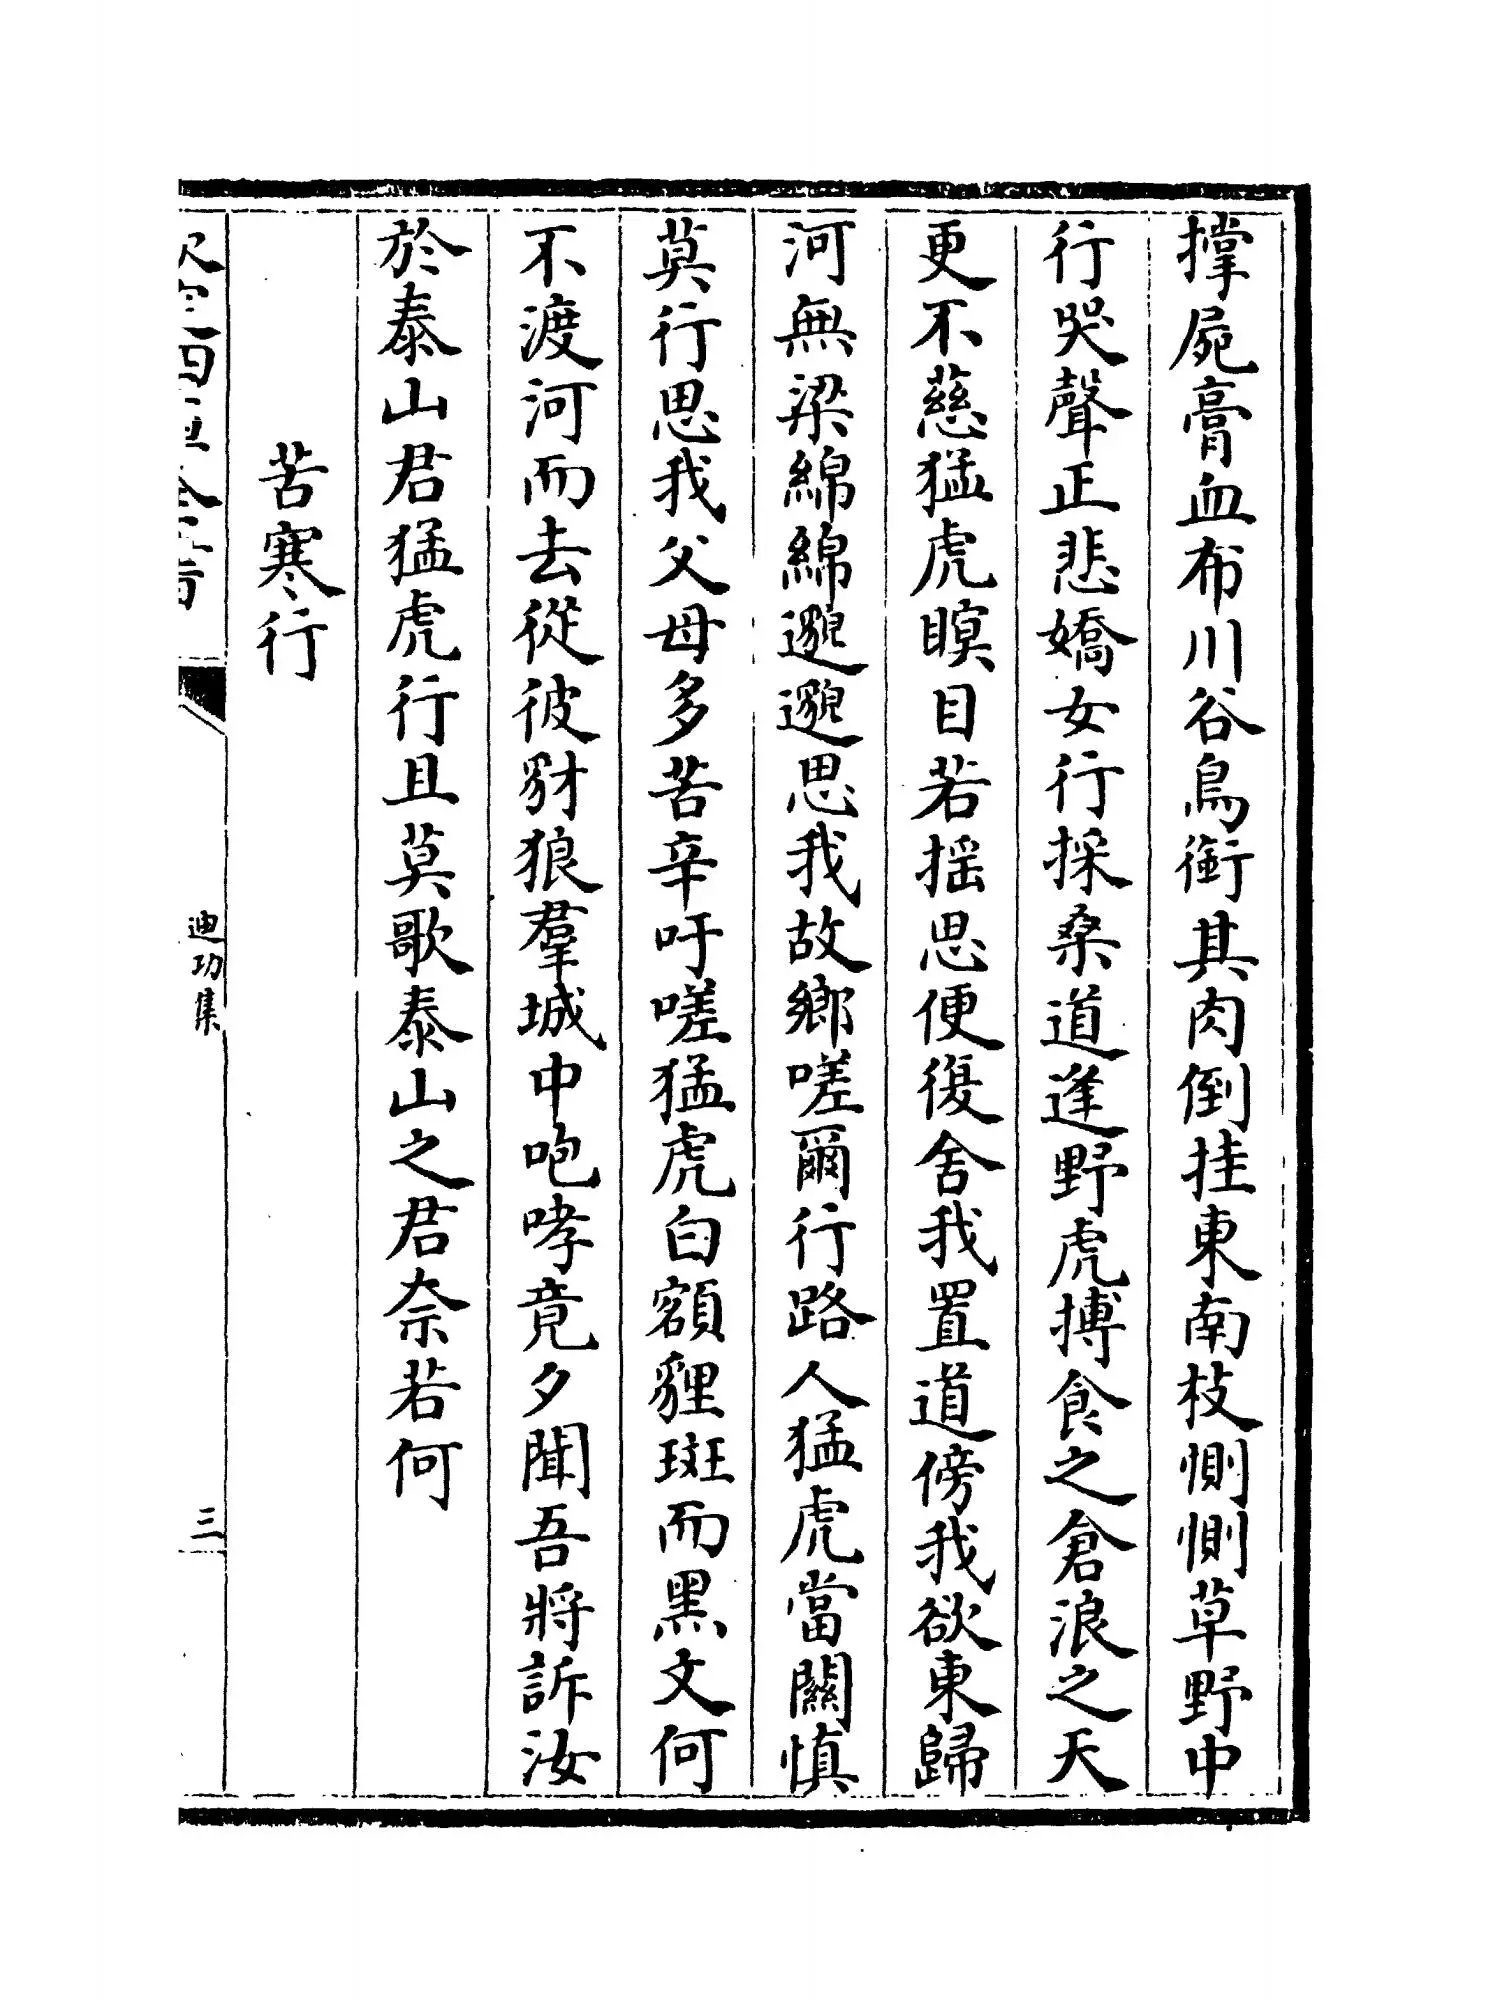 撐屍膏血布川谷鳥銜其肉倒挂東南枝惻惻草野中
行哭聲正悲嬌女行採桑道逢野虎搏食之倉浪之天
更不慈猛虎瞑目若揺思便復舍我置道傍我欲東歸
河無梁綿綿邈邈思我故鄉嗟爾行路人猛虎當關慎
莫行思我父母多苦辛吁嗟猛虎白額貍斑而黑文何
不渡河而去從彼豺狼羣城中咆哮竟夕聞吾將訴汝
於泰山君猛虎行且莫歌泰山之君奈若何
苦寒行
欽定四庫全書
迪功集
三